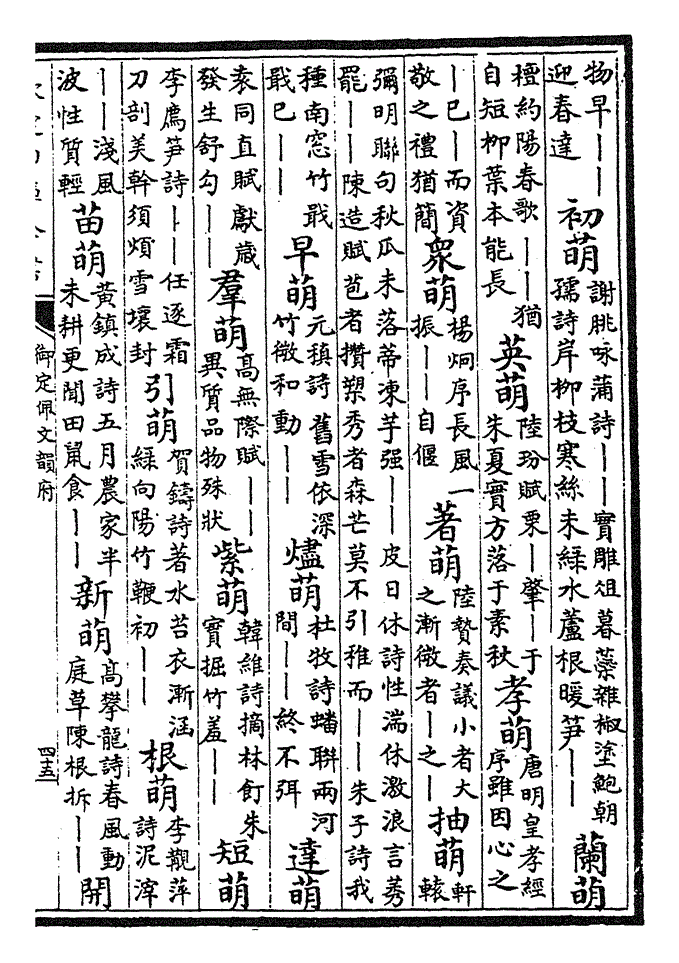 物早——迎春達 初萌 謝朓咏蒲詩——實雕俎暮蘂雜椒塗鮑朝孺詩岸柳枝寒絲未綠水蘆根暖笋—— 蘭萌
檀約陽春歌——猶自短柳葉本能長 英萌 陸玢賦栗—肇—于朱夏實方落于素秋 孝萌 唐明皇孝經序雖因心之
—巳—而資敬之禮猶簡 衆萌 楊炯序長風一振——自偃 著萌 陸贄奏議小者大之漸微者—之— 抽萌 軒轅
彌明聯句秋瓜未落蒂凍芋强——皮日休詩性湍休激浪言莠罷——陳造賦苞者攢槊秀者森芒莫不引稚而——朱子詩我
種南窓竹戢戢巳—— 早萌 元稹詩舊雪依深竹微和動—— 燼萌 杜牧詩蟠聯兩河間——終不弭 達萌
袁同直賦獻歲發生舒勾—— 羣萌 高無際賦——異質品物殊狀 紫萌 韓維詩摘林飣朱實掘竹羞—— 短萌
李廌笋詩——任逐霜刀剖美幹須煩雪壤封 引萌 賀鑄詩著水苔衣漸涵緑向陽竹鞭初—— 根萌 李觀萍詩泥滓
——淺風波性質輕 苗萌 黃鎮成詩五月農家半未耕更聞田鼠食—— 新萌 高攀龍詩春風動庭草陳根拆—— 開
御定佩文韻府